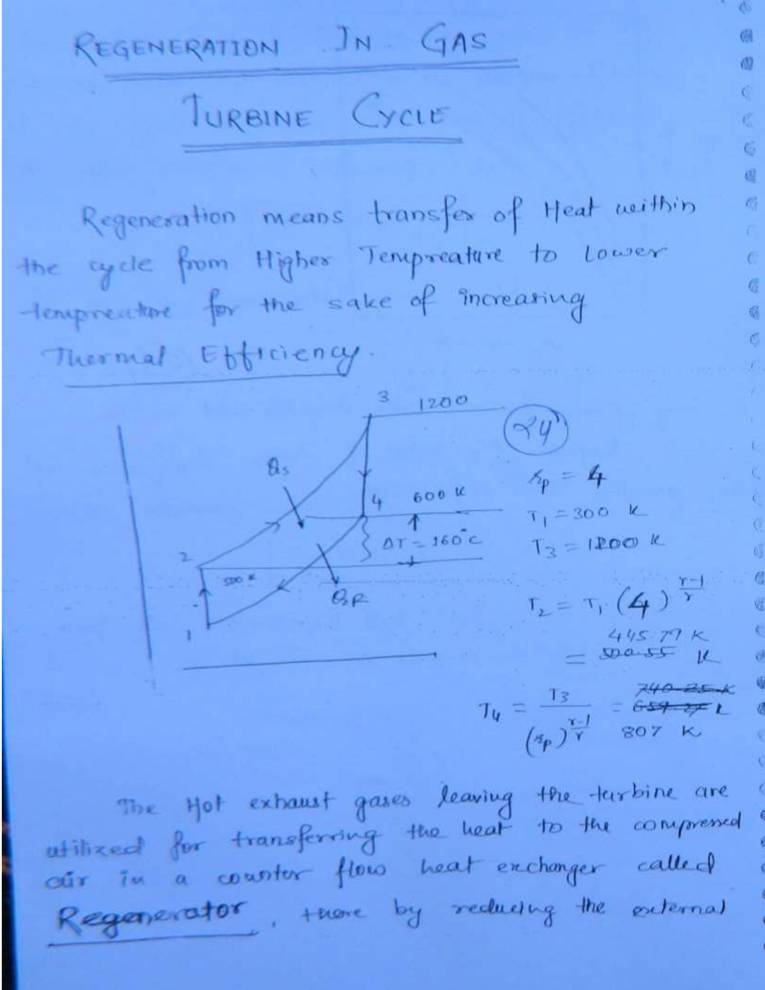 REGENERATION IN GAS
TURBINE CYCLE
Regeneration means transfer of Heat within
the cycle from Higher Tempreature to Lower
tempreature for the sake of increasing
Thermal Efficiency.
3 1200
Qs
4 600 K
ΔT = 160°C
2
500 K
QR
1
24
rp = 4
T1 = 300 K
T3 = 1200 K
T2 = T1 (4)^(r-1/r)
445.77 K
= 500.55 K
T4 = T3/(rp)^(r-1/r) = 740.25 K
807 K
The Hot exhaust gases leaving the turbine are
utilized for transferring the heat to the compressed
air in a counter flow heat exchanger called
Regenerator, there by reducing the external